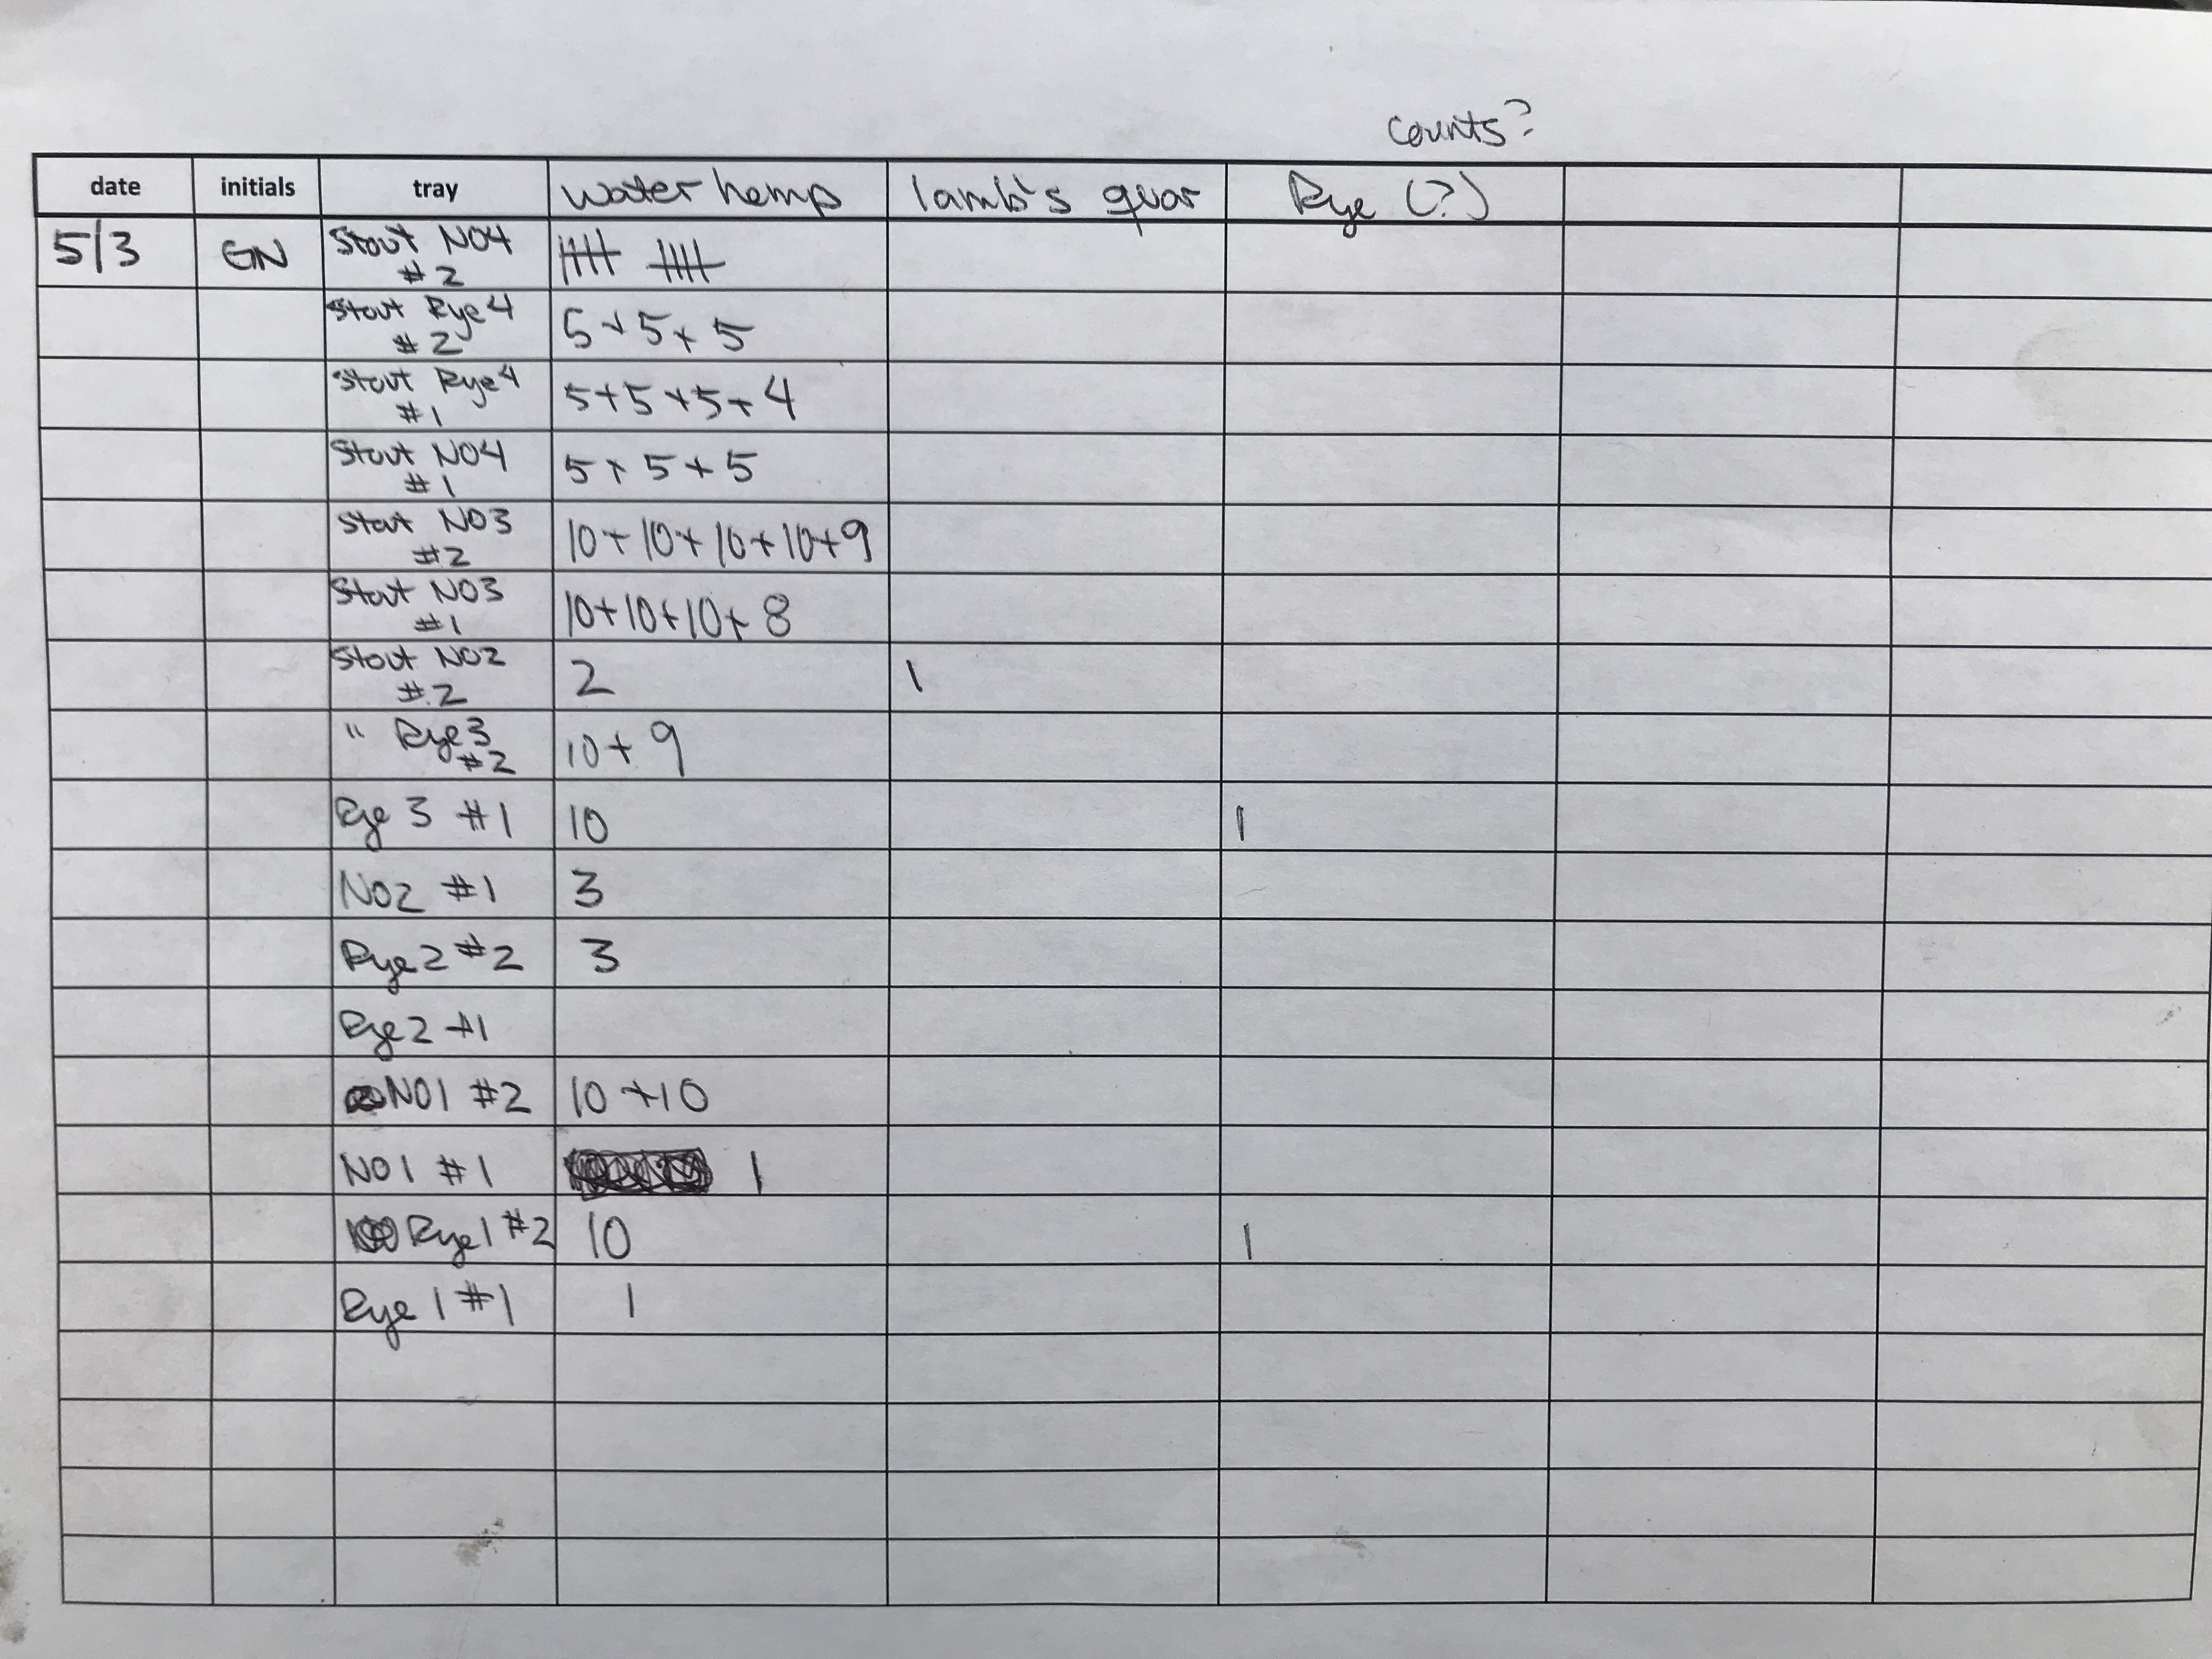 counts?
date initials tray waterhemp lamb's quar Rye (?)
5/3 GN Stout NO4
#2 𝍸 𝍸
Stout Rye4
#2 5+5+5
Stout Rye4
#1 5+5+5+4
Stout NO4
#1 5+5+5
Stout NO3
#2 10+10+10+10+9
Stout NO3
#1 10+10+10+8
Stout NO2
#2 2 1
" Rye3
#2 10+9
Rye 3 #1 10 1
NO2 #1 3
Rye2 #2 3
Rye2 #1
NO1 #2 10+10
NO1 #1 1
Rye1 #2 10 1
Rye 1 #1 1